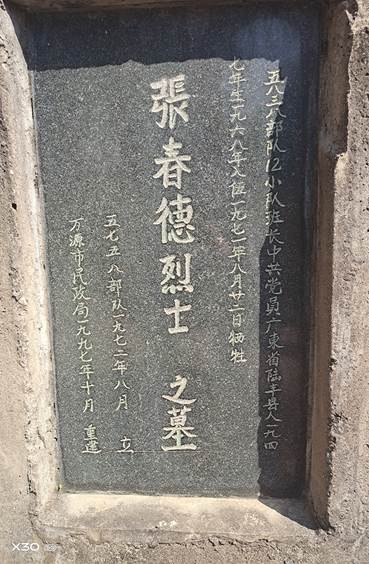 五八三八部队12小队班长中共党员广东省陆丰县人一九四
七年生一九六八年入伍一九七一年八月廿一日牺牲
張春德烈士之墓
五七五八部队一九七二年八月 立
万源市民政局一九九七年十月 重建
X30